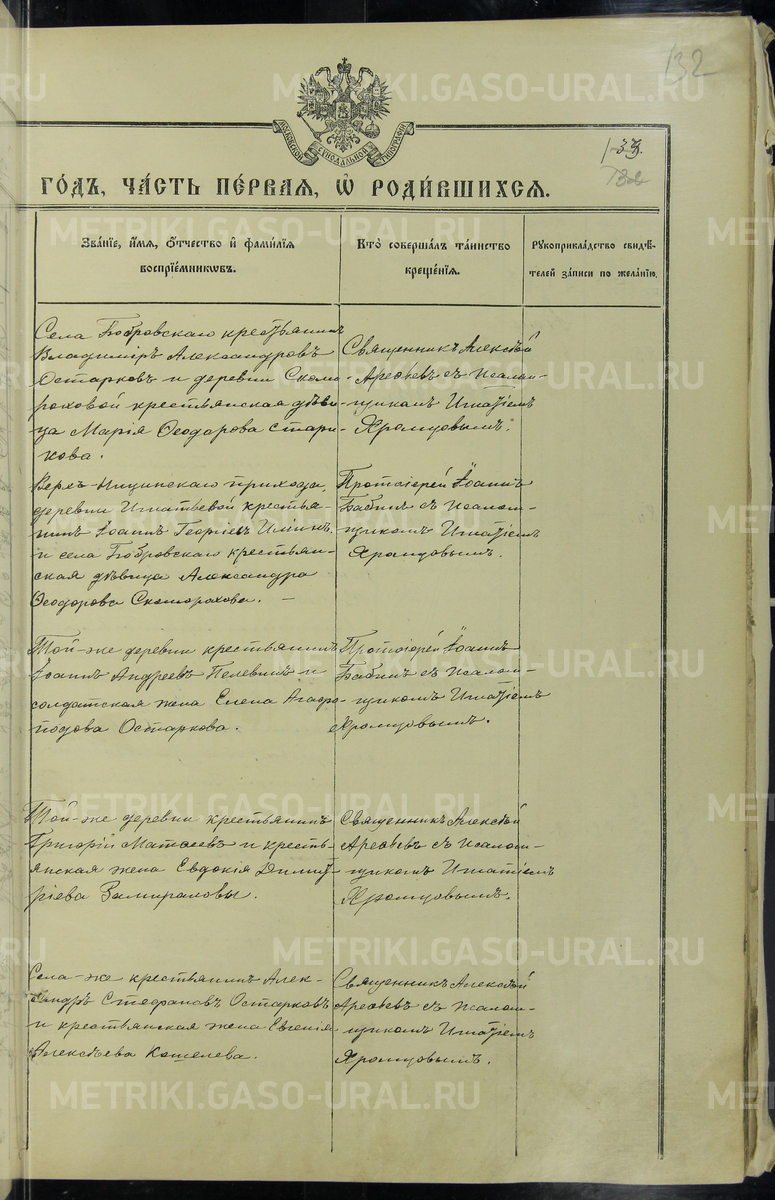 132
METRIKI.GASO-URAL.RU
МОСКОВСКОЙ СѴНОДАЛЬНОЙ ТИПОГРАФІИ
ГО́ДЪ, ЧА́СТЬ ПЕ́РВАЯ, Ѡ҆ РОДИ́ВШИХСЯ.
Зва́нїе, и҆́мя, ѻ҆́тчество и҆ фами́лїя
воспрїе́мникωвъ.
Кто̀ соверша́лъ та́инство
креще́нїя.
Рꙋкоприкла́дство свидѣ́-
телей за́писи по жела́нїю.
Села Бобровскаго крестьянинъ
Владиміръ Александровъ
Остарковъ и деревни Скомо-
роховой крестьянская дѣви-
ца Марія Ѳеодорова Стари-
кова.
Священникъ Алексѣй
Арефьевъ съ псалом-
щикомъ Игнатіемъ
Хромцовымъ.
Верх-Ницинскаго прихода,
деревни Игнатьевой крестья-
нинъ Іоаннъ Георгіевъ Иминъ
и села Бобровскаго крестьян-
ская дѣвица Александра
Ѳеодорова Скоморохова. —
Протоіерей Іоаннъ
Бабинъ съ псалом-
щикомъ Игнатіемъ
Хромцовымъ.
Той-же деревни крестьянинъ
Іоаннъ Андреевъ Пелевинъ и
солдатская жена Елена Агафо-
нодова Остаркова.
Протоіерей Іоаннъ
Бабинъ съ псалом-
щикомъ Игнатіемъ
Хромцовымъ.
Той-же деревни крестьянинъ
Григорій Матѳеевъ и кресть-
янская жена Евдокія Дими-
тріева Замираловы.
Священникъ Алексѣй
Арефьевъ съ псалом-
щикомъ Игнатіемъ
Хромцовымъ.
Села-же крестьянинъ Алек-
сандръ Стефановъ Остарковъ
и крестьянская жена Евгенія
Алексѣева Кошелева.
Священникъ Алексѣй
Арефьевъ съ псалом-
щикомъ Игнатіемъ
Хромцовымъ.